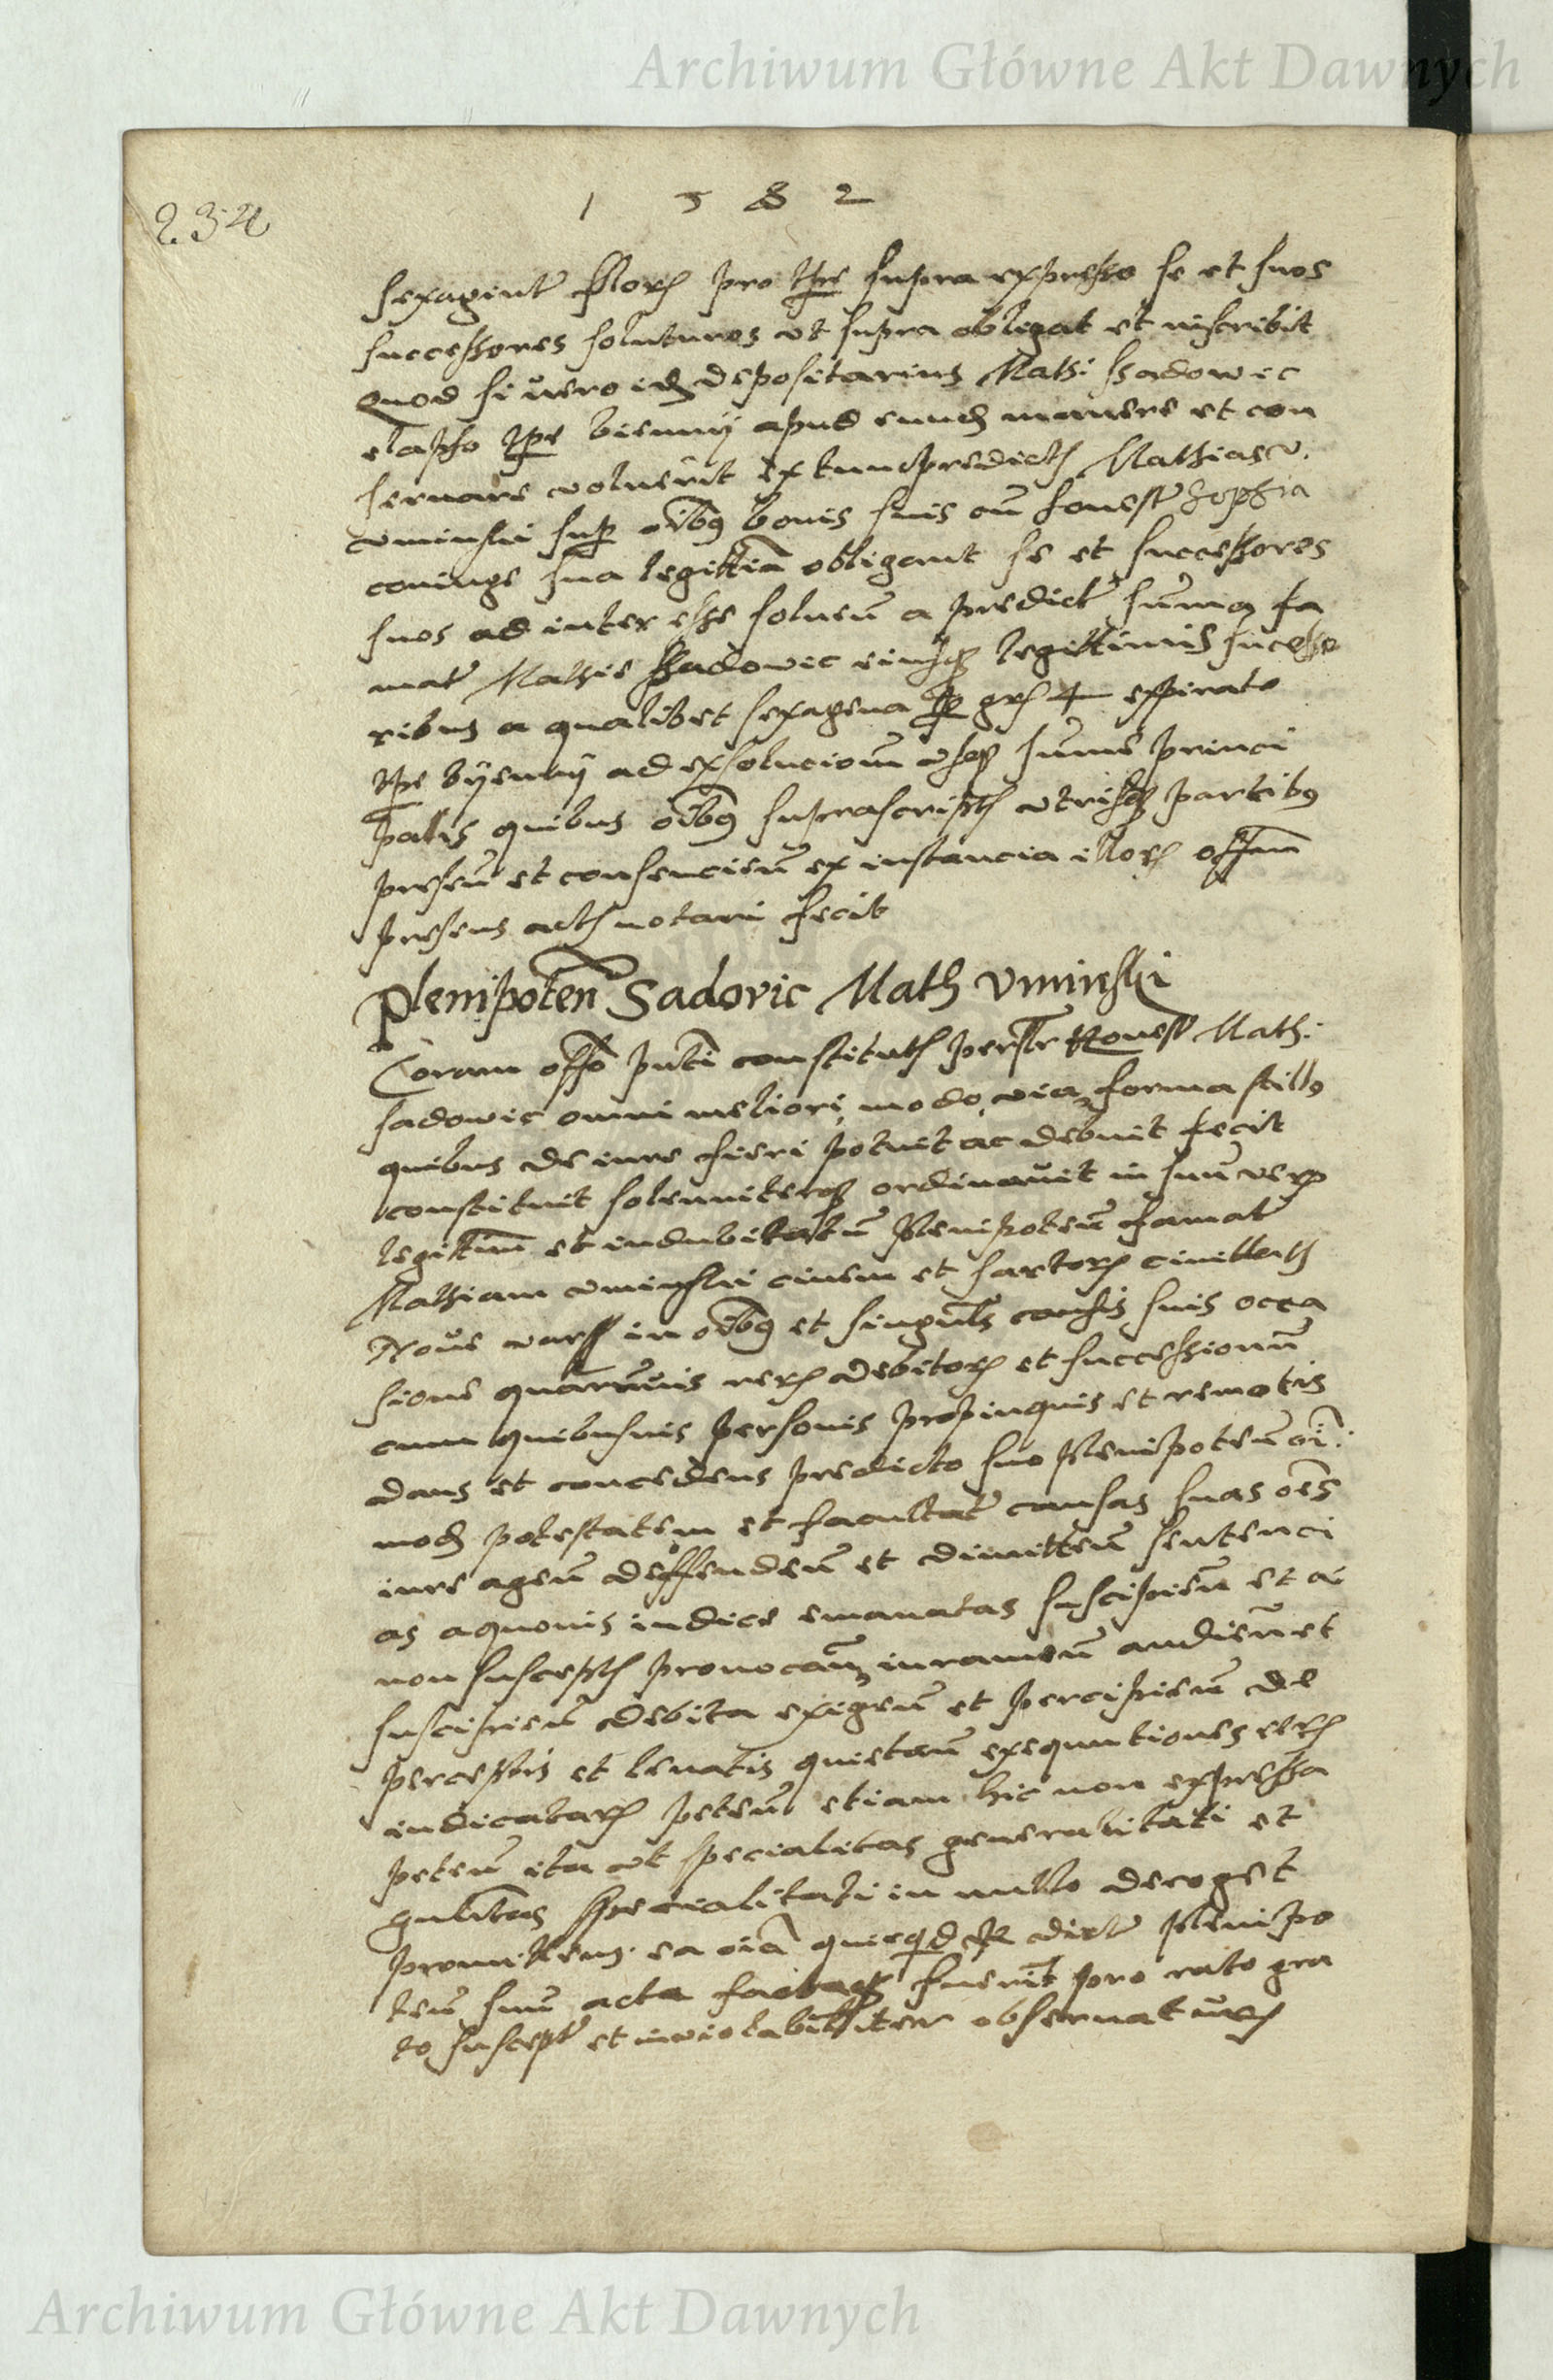 Archiwum Główne Akt Dawnych
1582
234
sexagint florum pro tpre supra expresso se et suos
successores soluturos ut supra obligat et inscribit
Quod si vero id depositarius Mathi Sadowic
elapso tpre bienny apud eund manere et con
servare voluerit ex tunc predicts Mathias v.
vminski sup oibus bonis suis cu honest Sophia
coniuge sua legittia obligant se et successores
suos ad interesse solven a predict suma fa
mat Mathie Sadowic eiusq legittimis successo
ribus a qualibet sexagena per grs 4 expirato
tpre byenny ad exsolucionem usq sume princi
palis quibus oibus suprascripts utrisq partibus
presen et consencien ex instancia illorum offm
presens acts notari fecit
Plenipoten Sadovic Math Vminski
Coram offo pnti constituts personr Honest Math:
sadowic omni meliori modo, via, forma stillo
quibus de iure fieri potuit ac debuit fecit
constituit solenniterq ordinavit in suu veru
legittim et indubitatu Plenipoten famat
Mathiam vminski civem et sartore civittats
Nove wars in oibus et singulis causis suis occa
sione quarumvis rerum debitorum et successionu
cum quibusvis personis propinquis et remotis
dans et concedens predicto suo Plenipoten oi:
mod potestatem et facultate causas suas oes
iure agen deffenden et dimitten sentenci
as a quovis iudice emanatas suscipien et a
non suscepts provocan iuramen audien et
suscipien debita exigen et percipien de
perceptis et levatis quietan exequutiones rerum
iudicatarum peten etiam hic non expressa
peten ita ut specialitas generalitati et
gnlitas specialitati in nullo deroget
promittens ea oia queq d per dict Plenipo
ten suu acta factaq fuerit pro rato gra
to suscept et inviolabilliter observaturum
Archiwum Główne Akt Dawnych